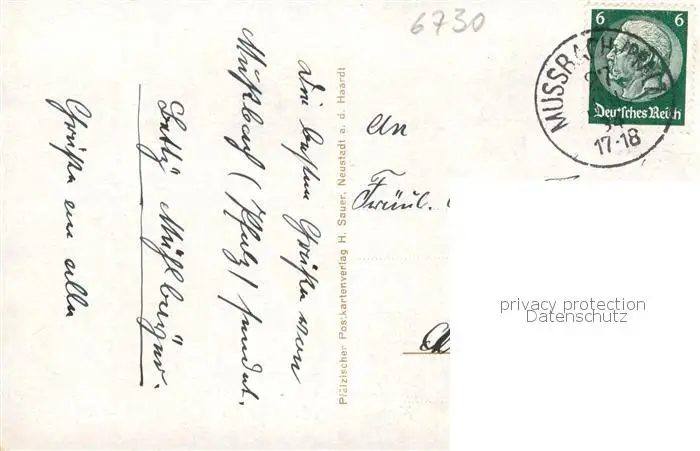 6730
Die besten Grüße von
Mußbach (Pfalz) sendet.
Betty Mühlberger.
Grüße an alle
Pfälzischer Postkartenverlag H. Sauer, Neustadt a. d. Haardt
6 6
Deutsches Reich
MUSSBACH (PFALZ)
17-18
An
Fräul.
privacy protection
Datenschutz